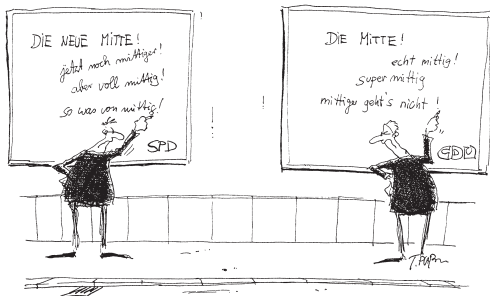 DIE NEUE MITTE!
jetzt noch mittiger!
aber voll mittig!
so was von mittig!
SPD
DIE MITTE!
echt mittig!
super mittig
mittiger geht's nicht!
CDU